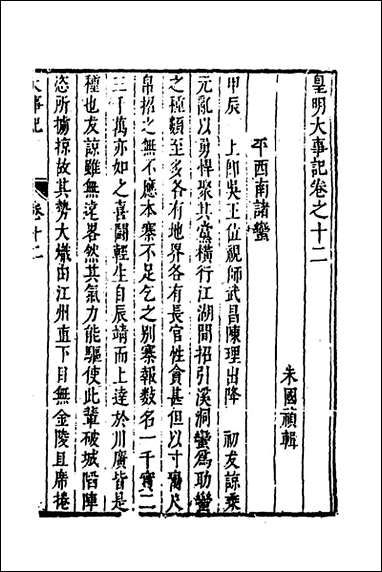 皇明大事記卷之十二
朱國禎輯
平西南諸蠻
甲辰　上即吳王位視師武昌陳理出降　初友諒乘
元亂以勇悍聚其黨橫行江湖間招引溪洞蠻為助蠻
之種類至多各有地界各有長官性貪甚但以寸鬵尺
帛招之無不應本寨不足乞之別寨報數名一千實二
三千萬亦如之喜鬪輕生自辰靖而上達於川廣皆是
種也友諒雖無遠畧然其氣力能驅使此輩破城陷陣
恣所擄掠故其勢大熾由江州直下目無金陵且席捲
大事記　卷十二